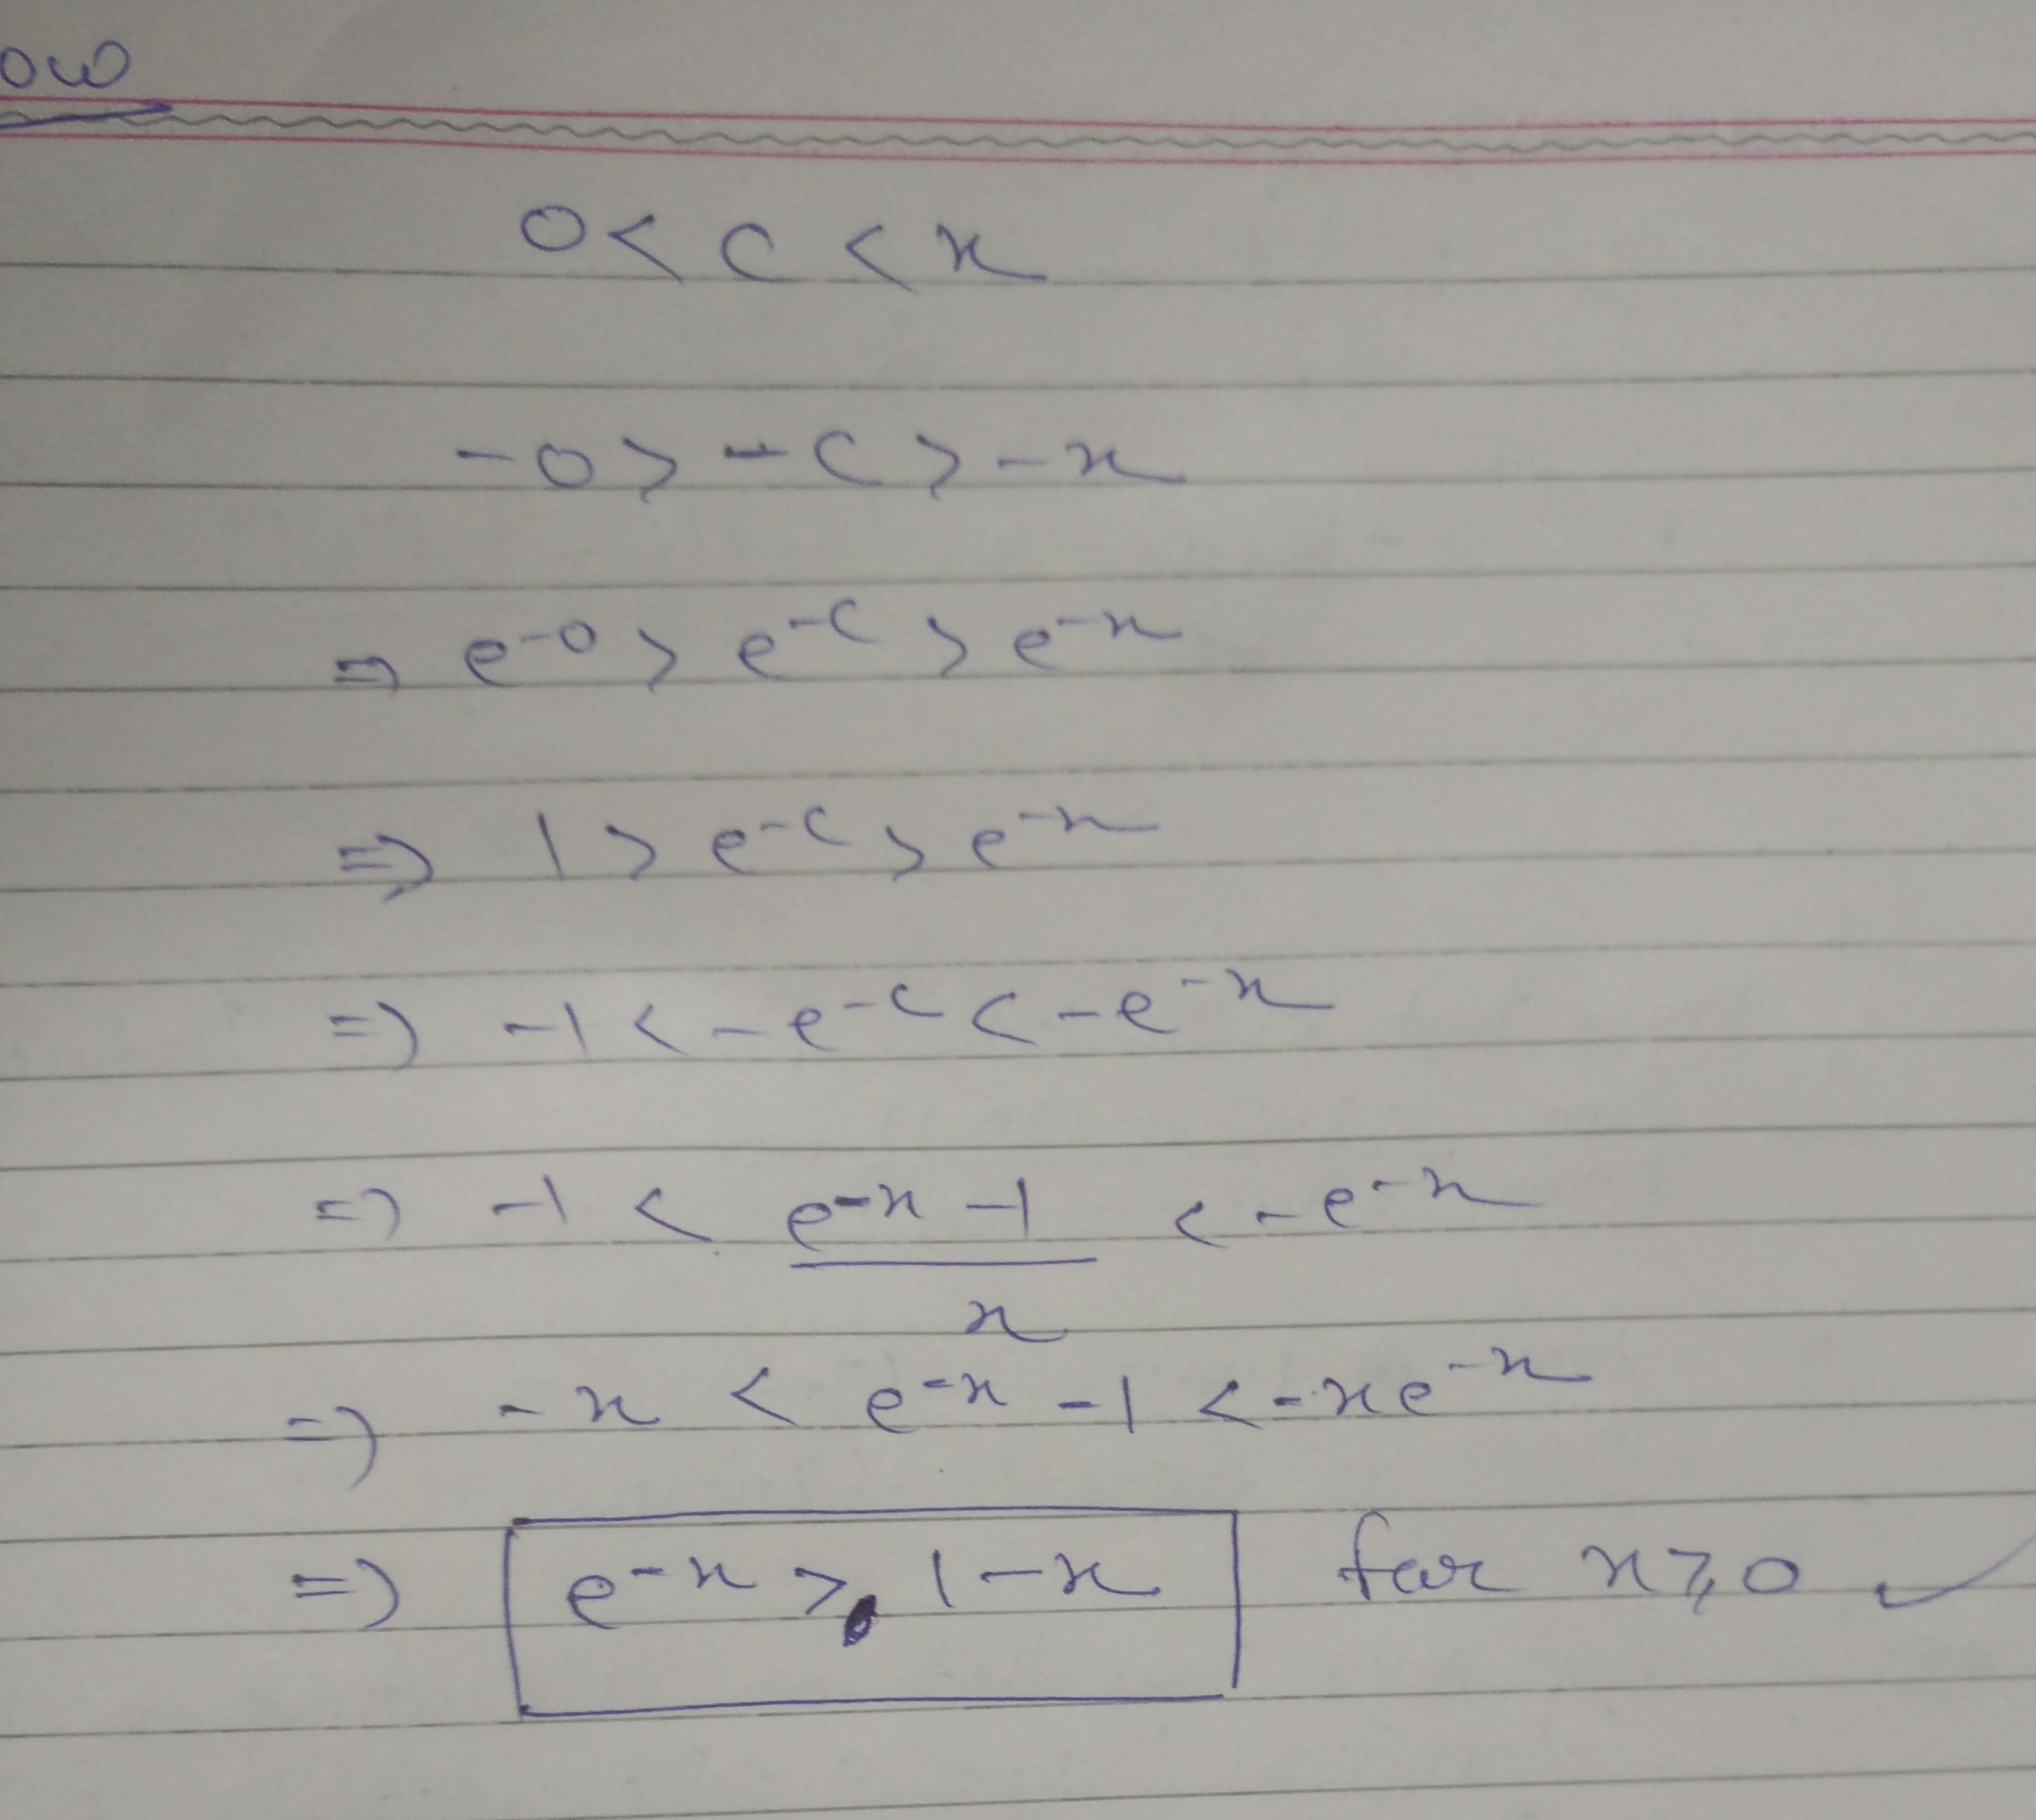 ow
0 < c < x
-0 > -c > -x
⇒ e^{-0} > e^{-c} > e^{-x}
⇒ 1 > e^{-c} > e^{-x}
⇒ -1 < -e^{-c} < -e^{-x}
⇒ -1 < \frac{e^{-x} - 1}{x} < -e^{-x}
⇒ -x < e^{-x} - 1 < -xe^{-x}
⇒ e^{-x} ≥ 1 - x for x ≥ 0 ✓